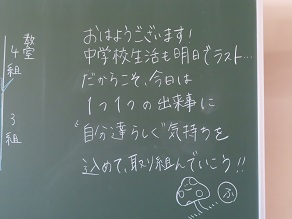 教室
4組
3組
おはようございます!
中学校生活も明日でラスト…
だからこそ、今日は
1つ1つの出来事に
"自分達らしく"気持ちを
込めて、取り組んでいこう!!
ふ